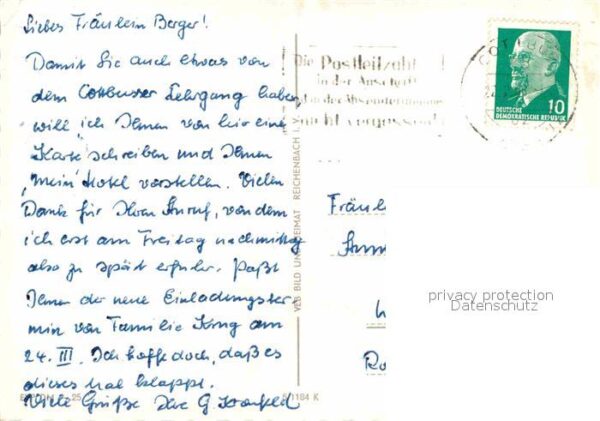 Liebes Fräulein Berger!
Damit Sie auch etwas von
dem Cottbuser Lehrgang haben,
will ich Ihnen von hier eine
Karte schreiben und Ihnen
"mein" Hotel vorstellen. Vielen
Dank für Ihren Anruf, von dem
ich erst am Freitag nachmittag
also zu spät erfuhr. Paßt
Ihnen der neue Einladungster
min von Familie Krug am
24. III. Ich hoffe doch, daß es
dieses Mal klappt.
Viele Grüße Ihr G.
25
1184 K
VEB BILD UND HEIMAT REICHENBACH I.
Die Postleitzahl
in der Anschrift
und in der Absenderangabe
nicht vergessen!
COTTBUS
10
DEUTSCHE
DEMOKRATISCHE REPUBLIK
Fräul
privacy protection
Datenschutz